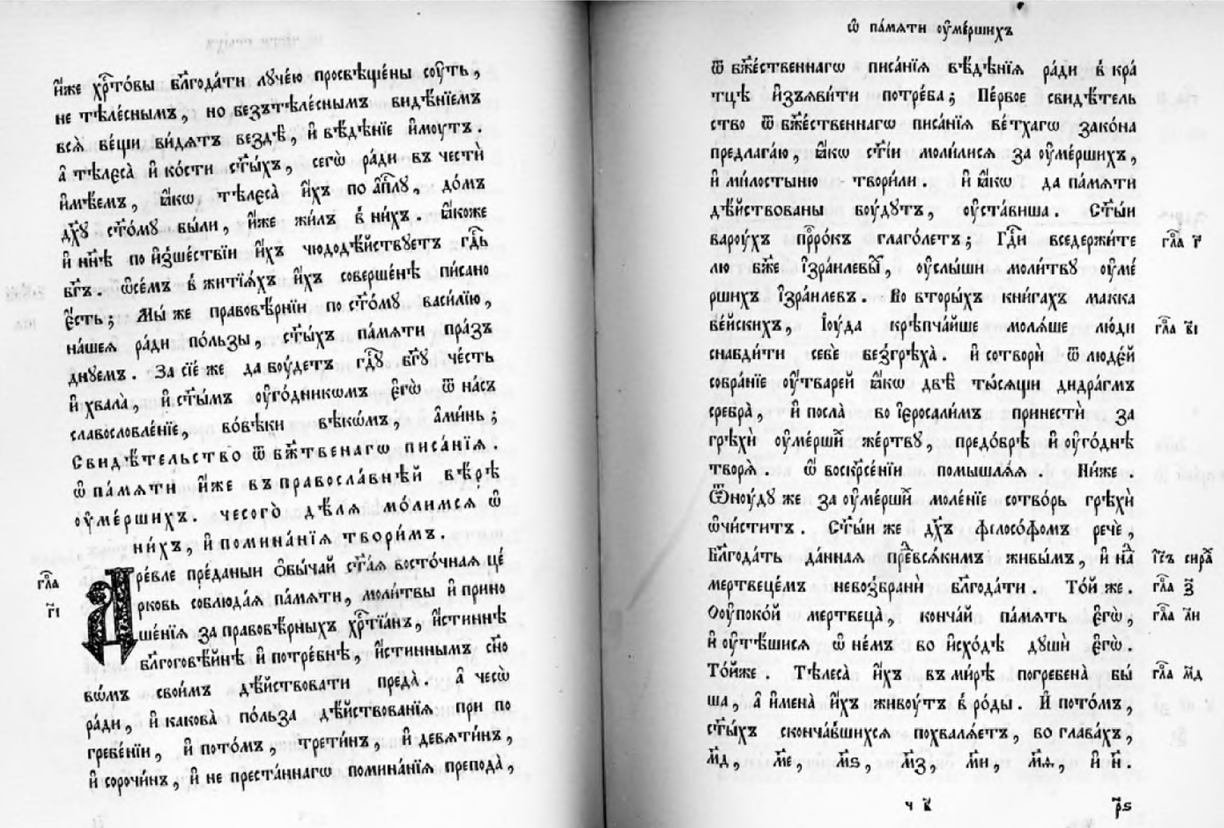 и҆́же хрⷭ҇то́вы бл҃года́ти лꙋче́ю просвѣще́ны сꙋ́ть,
не тѣле́снымъ, но безътѣле́снымъ видѣ́нїемъ
всѧ̀ ве́щи ви́дѧтъ вездѣ̀, и҆ вѣ́дѣнїе и҆́мꙋтъ.
а҆ тѣлеса̀ и҆ ко́сти ст҃ы́хъ, сегѡ̀ ра́ди въ че́сти
и҆мѣ́емъ, ꙗ҆́кѡ тѣлеса̀ и҆́хъ по а҆пⷭ҇лꙋ, до́мъ
дх҃ꙋ ст҃о́мꙋ бы́ли, и҆́же жи́лъ в ни́хъ. ꙗ҆́коже
и҆ нн҃ѣ по и҆зше́ствїи и҆́хъ чюдодѣ́йствꙋетъ гдⷭ҇ь
бг҃ъ. ѡ҆се́мъ в житїѧ́хъ и҆́хъ соверше́нѣ пи́сано
є҆́сть; Мы́ же правовѣ́рнїи по ст҃о́мꙋ васи́лїю,
на́шеѧ ра́ди по́льзы, ст҃ы́хъ па́мѧти пра́з
днꙋемъ. За сїе́ же да бꙋ́детъ гдⷭ҇ꙋ бг҃ꙋ че́сть
и҆ хвала̀, и҆ ст҃ы́мъ ᲂу҆го́дникомъ є҆гѡ̀ ѿ на́съ
славосло́вленїе, во́вѣки вѣкѡ́мъ, а҆ми́нь;
Свидѣ́тельство ѿ бж҃твенагѡ писа́нїѧ.
ѡ҆ па́мѧти и҆́же въ правосла́внѣй вѣ́рѣ
ᲂу҆ме́ршихъ. чесого̀ дѣ́лѧ мо́лимсѧ ѡ҆
ни́хъ, и҆ помина́нїѧ твори́мъ.
гл҃а
г҃і
Дре́вле пре́даныи ѻ҆бы́чай ст҃а́ѧ восто́чнаѧ це́
рковь соблюда́ѧ па́мѧти, моли́твы и҆ прино
ше́нїѧ за правовѣ́рныхъ хрⷭ҇тїа́нъ, и҆́стиннѣ
бл҃гоговѣ́йнѣ и҆ потре́бнѣ, и҆́стиннымъ сн҃о
вѡ́мъ свои́мъ дѣ́йствовати преда̀. а҆ чесѡ̀
ра́ди, и҆ какова̀ по́льза дѣ́йствованїѧ при по
гребе́нїи, и҆ пото́мъ, трети́нъ, и҆ девѧти́нъ,
и҆ сорочи́нъ, и҆ не преста́ннагѡ помина́нїѧ препода̀,
ѡ҆ па́мѧти ᲂу҆ме́ршихъ
ѿ бж҃е́ственнагѡ писа́нїѧ вѣ́дѣнїѧ ра́ди в кра́
тцѣ и҆з̾ѧви́ти потре́ба; Пе́рвое свидѣ́тель
ство ѿ бж҃е́ственнагѡ писа́нїѧ ве́тхагѡ зако́на
предлага́ю, ꙗ҆́кѡ ст҃і́и моли́лисѧ за ᲂу҆ме́ршихъ,
и҆ ми́лостыню твори́ли. и҆ ꙗ҆́кѡ да па́мѧти
дѣ́йствованы бꙋ́дꙋтъ, ᲂу҆ста́виша. Ст҃ы́и
варꙋ́хъ прⷪ҇ро́къ глаго́летъ; Гдⷭ҇и вседержи́те
гл҃а г҃
лю бж҃е і҆зра́илевы, ᲂу҆слы́ши моли́твꙋ ᲂу҆ме́
ршихъ і҆зра́илевъ. Во вторы́хъ кни́гахъ макка
ве́йскихъ, І҆ю́да крѣпча́йше молѧ́ше лю́ди
гл҃а в҃і
снабди́ти себѐ безгрѣха̀. и҆ сотворѝ ѿ люде́й
собра́нїе ᲂу҆́тварей ꙗ҆́кѡ двѣ̀ ты́сѧщи дидра́гмъ
сребра̀, и҆ посла̀ во і҆еросали́мъ принестѝ за
грѣхѝ ᲂу҆ме́ршиⷯ же́ртвꙋ, предо́брѣ и҆ ᲂу҆го́днѣ
творѧ̀. ѡ҆ воскрⷭ҇е́нїи помышлѧ́ѧ. Ни́же.
Ѿню́дꙋ же за ᲂу҆ме́ршиⷯ моле́нїе сотво́рь грѣхѝ
ѡ҆чи́ститъ. Ст҃ы́и же дх҃ъ филосо́фомъ речѐ,
Бл҃года́ть да́ннаѧ преⷣвсѧ́кимъ живы́мъ, и҆ наⷣ
і҆и҃съ сира́ⷯ
мертвеце́мъ невозбранѝ бл҃года́ти. То́й же.
гл҃а з҃
Ѻ҆ᲂу҆поко́й мертвеца̀, конча́й па́мѧть є҆гѡ̀,
гл҃а л҃и
и҆ ᲂу҆тѣ́шисѧ ѡ҆ не́мъ во и҆схо́дѣ дꙋшѝ є҆гѡ̀.
То́йже. Тѣлеса̀ и҆́хъ въ ми́рѣ погребена̀ бы́
гл҃а м҃д
ша, а҆ и҆мена̀ и҆́хъ живꙋ́тъ в ро́ды. И҆ пото́мъ,
ст҃ы́хъ сконча́вшихсѧ похвалѧ́етъ, во глава́хъ,
м҃д, м҃е, м҃ѕ, м҃з, м҃и, м҃ѳ, и҆ н҃.
ч в҃
р҃ѕ